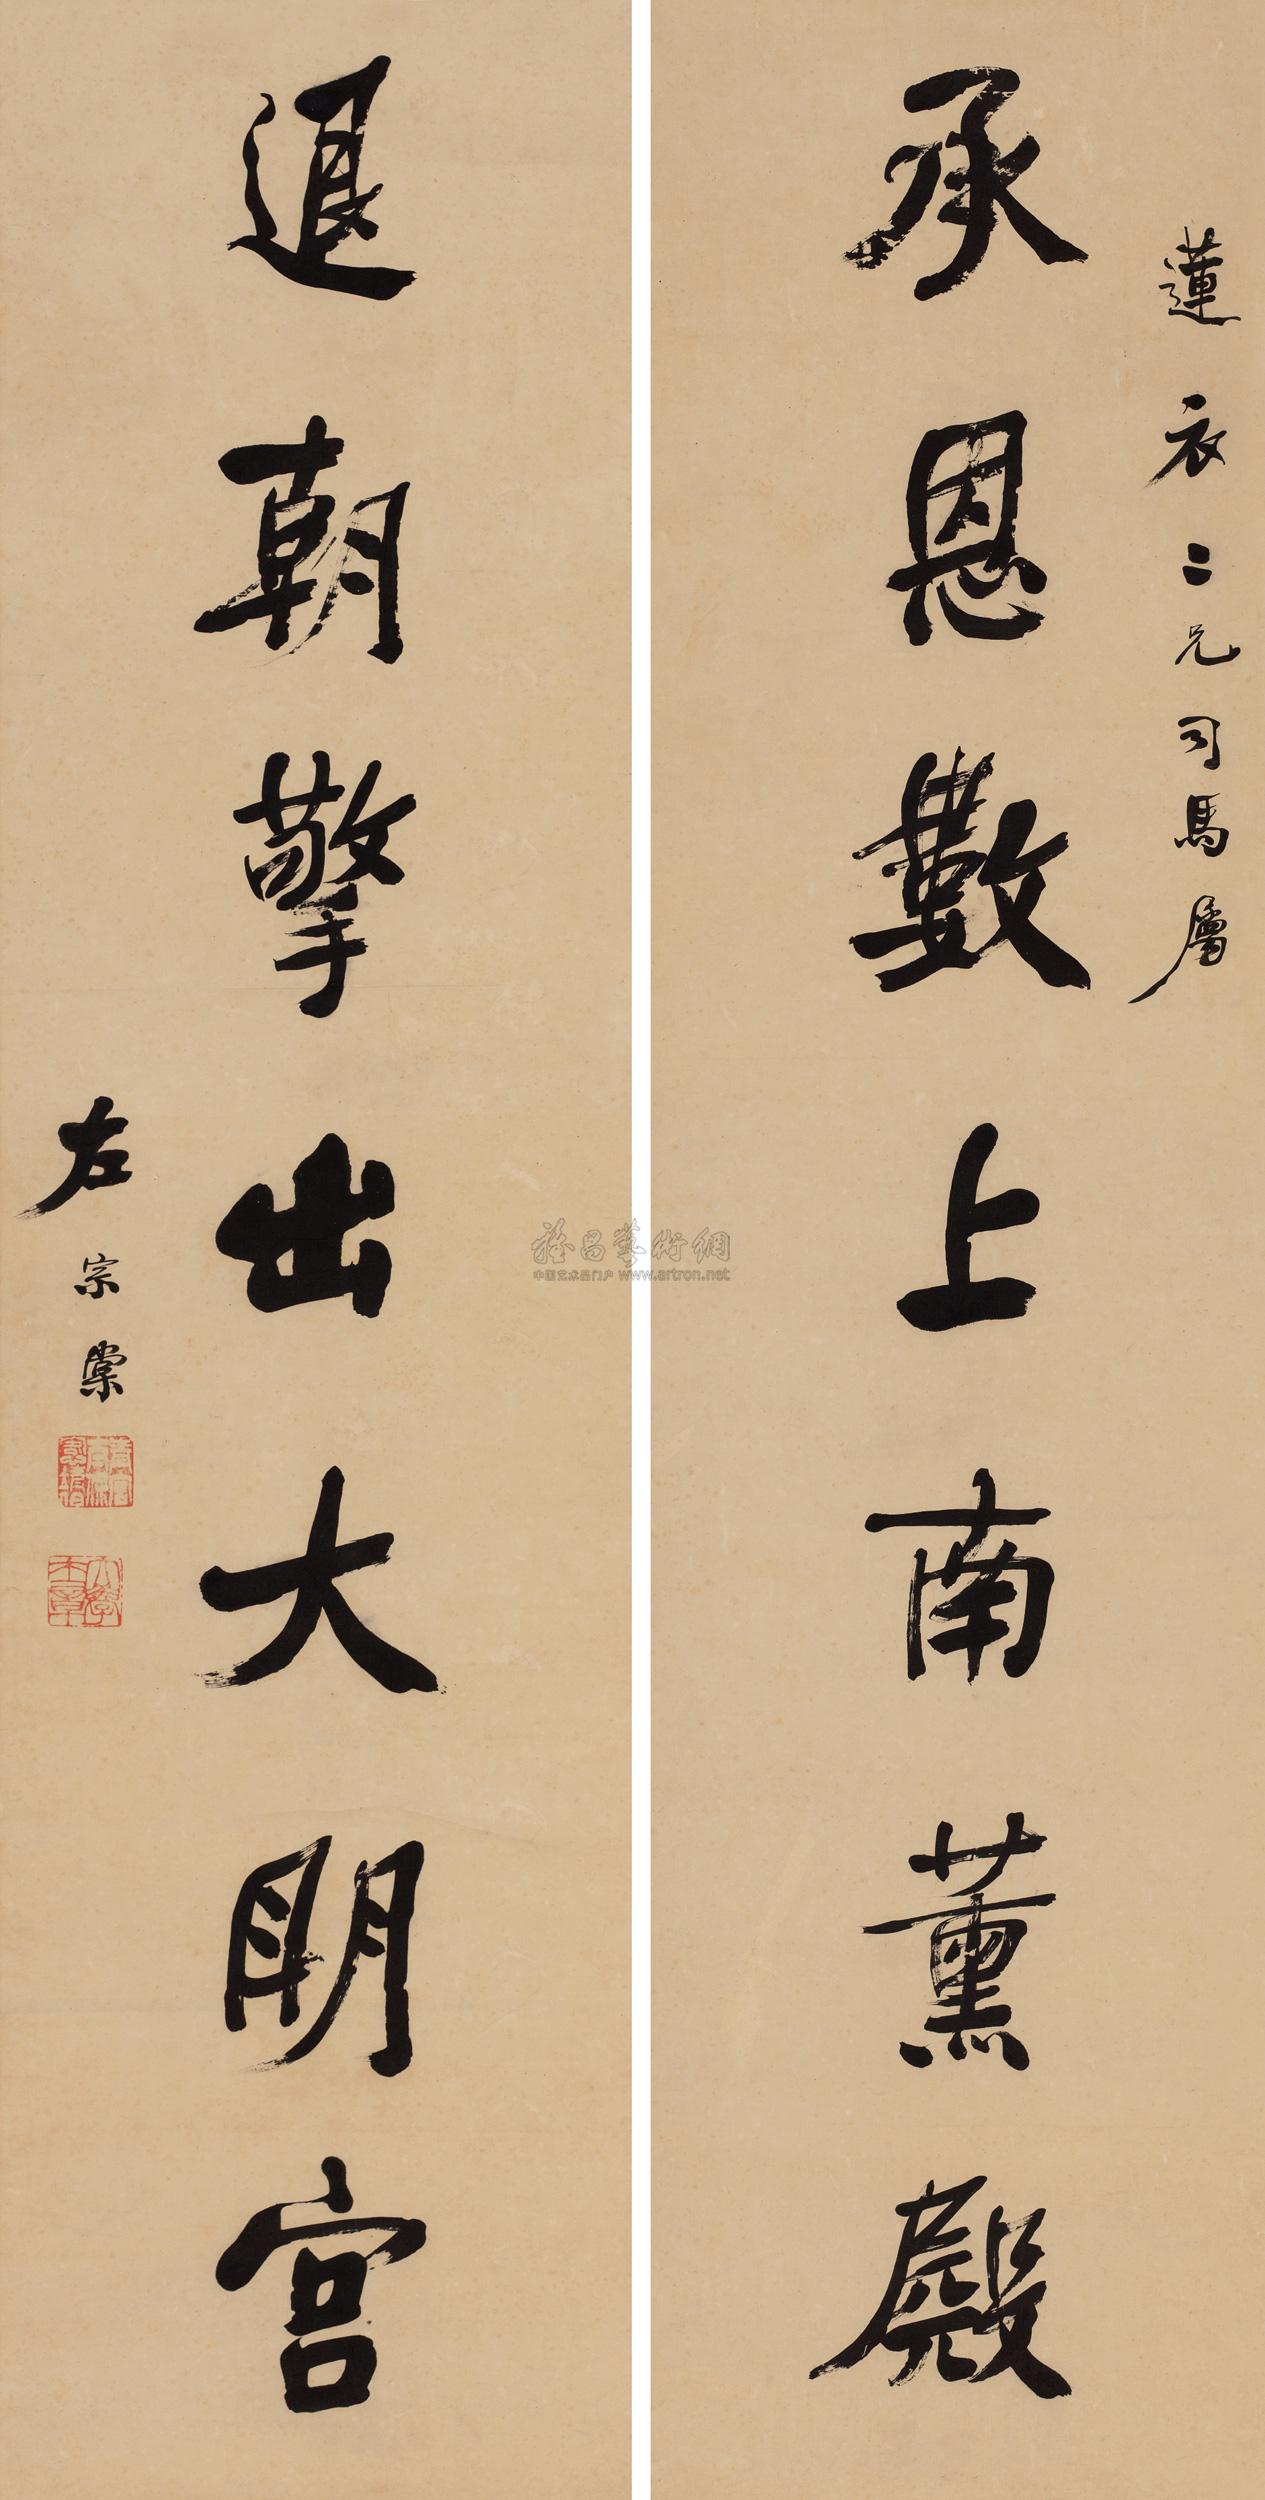 蓮衣二兄司馬屬
承恩數上南薰殿
退朝擎出大明宮
左宗棠
雅昌藝術網
中国艺术品门户 www.artron.net